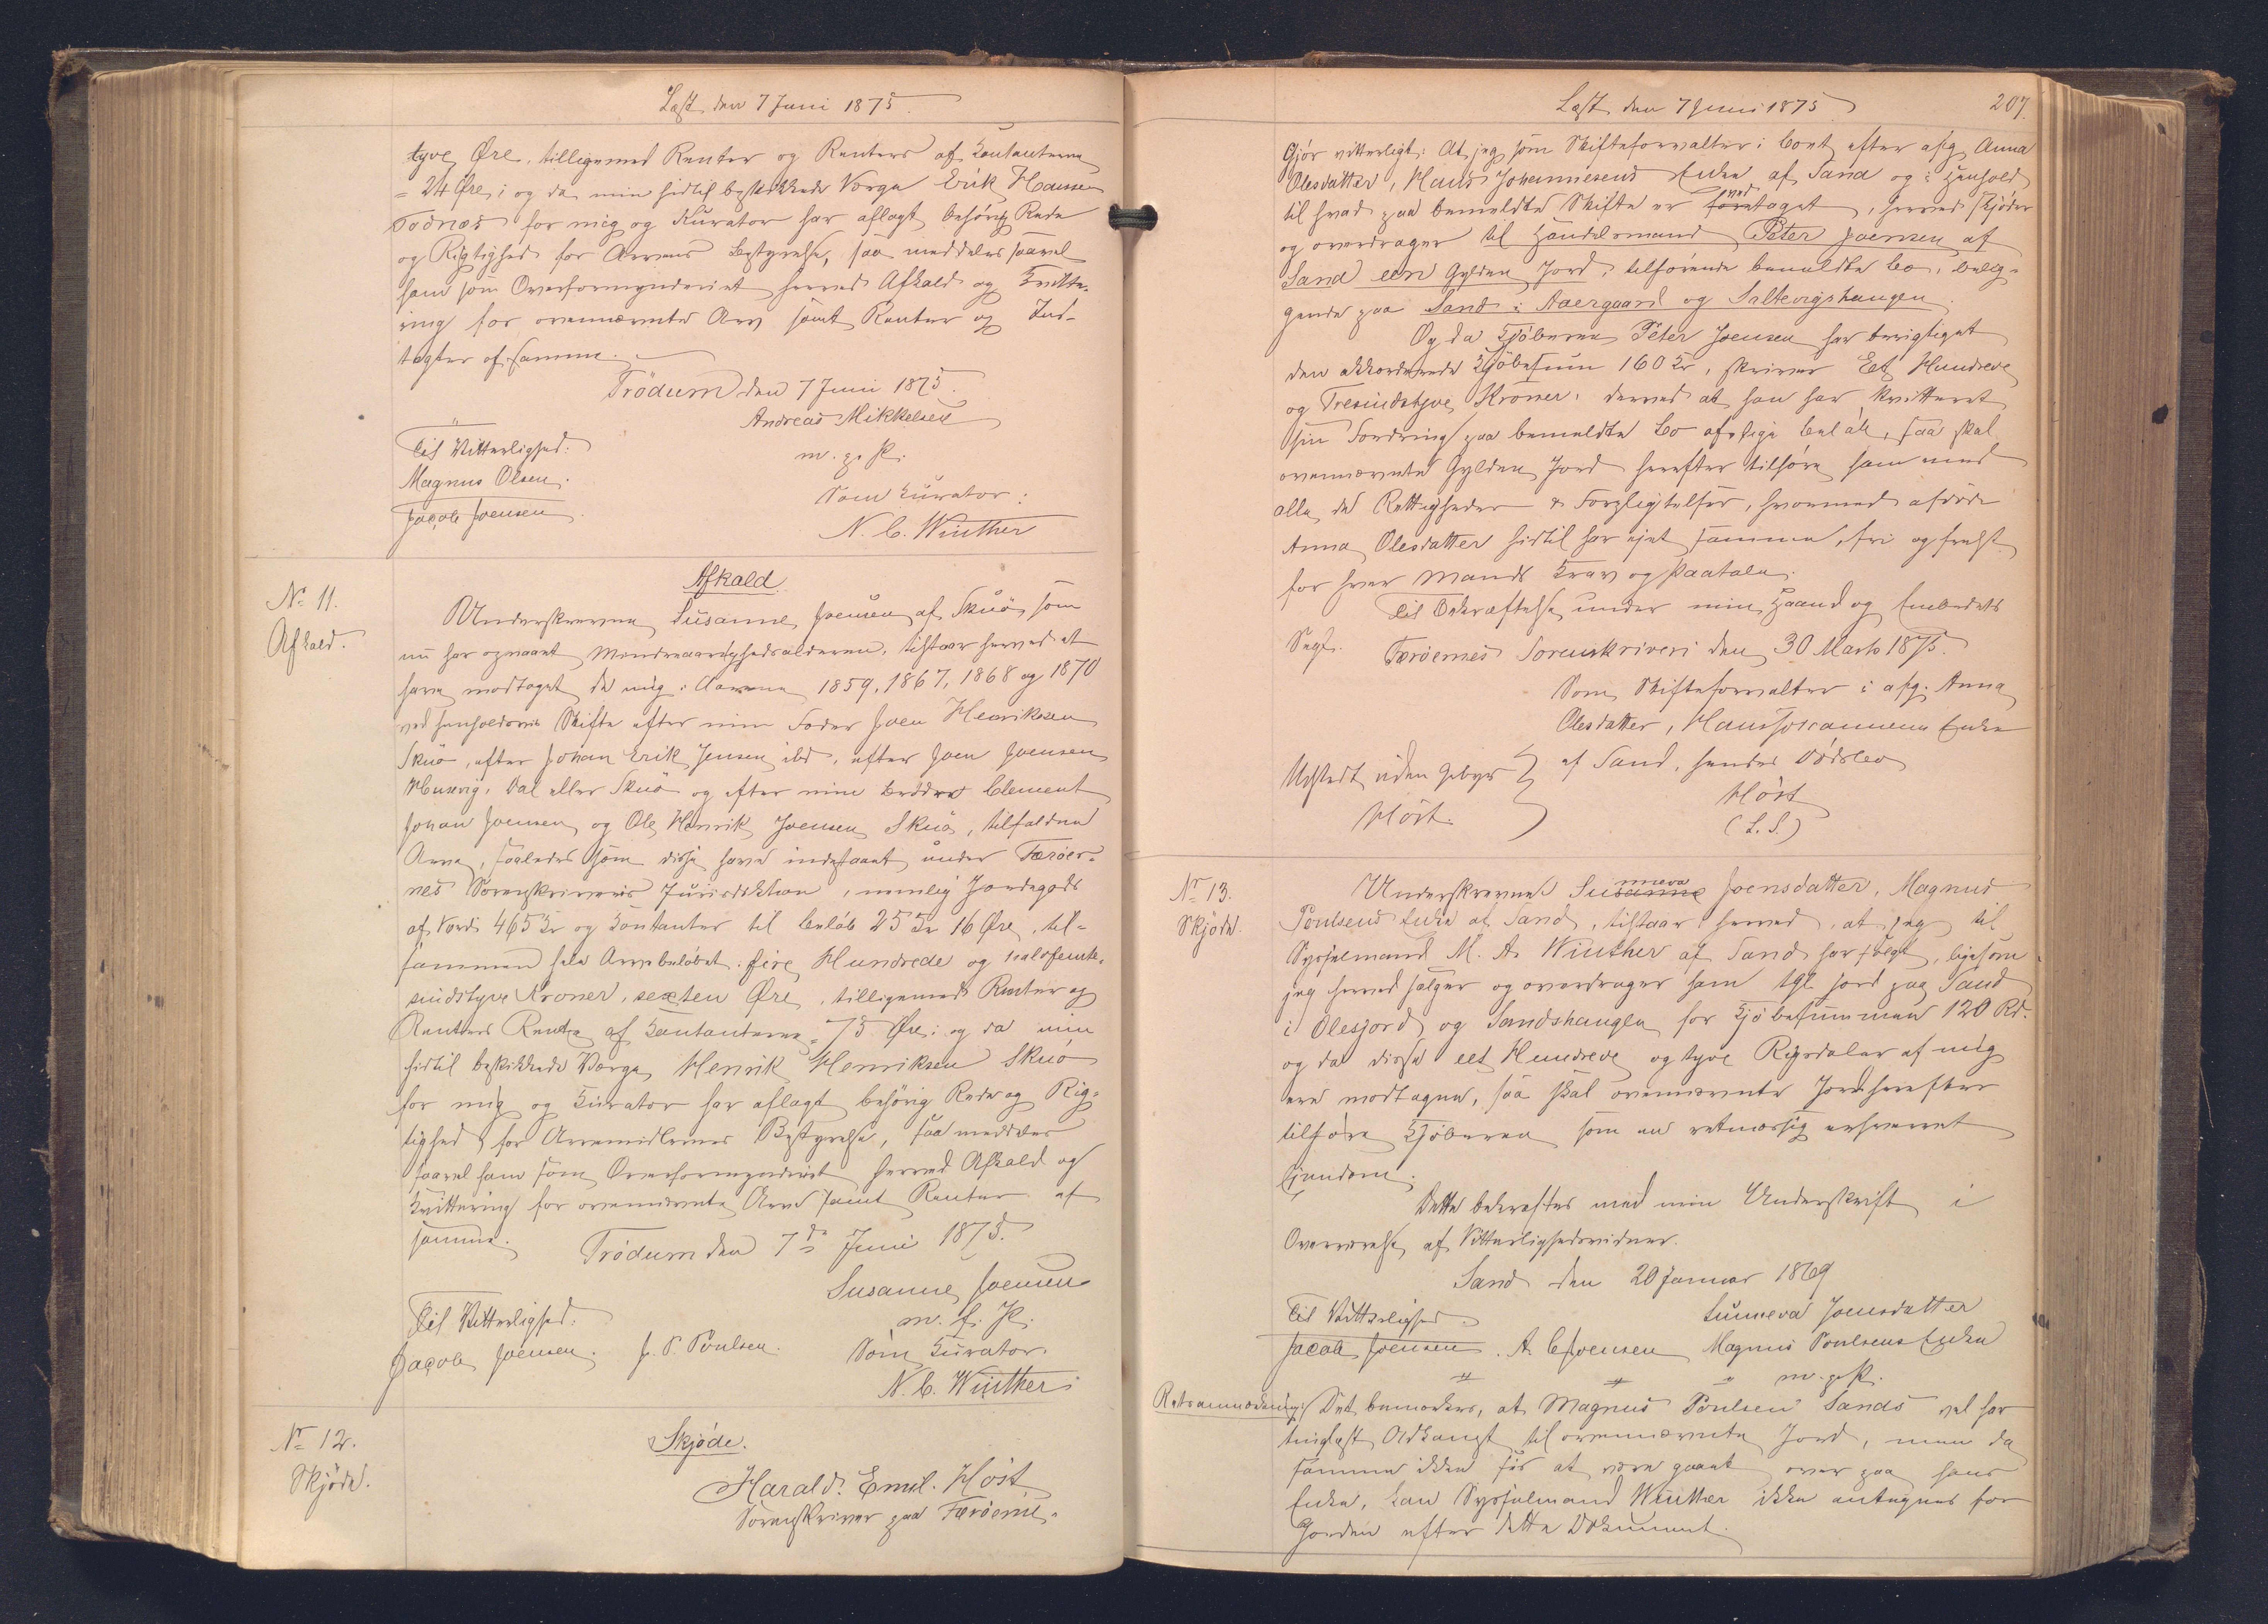 Læst den 7 Juni 1875.
tyve Øre, tilligemed Renter og Renters af Kontanterne
= 24 Øre; og da min hidtil beskikkede Værge Erik Hansen
Todnæs for mig og Kurator har aflagt behørig Rede
og Rigtighed for Arvens Bestyrelse, saa meddeles saavel
ham som Overformynderiet herved Afkald og Kvitte-
ring for ovennævnte Arv samt Renter og Ind-
tægter af samme.
Trödum den 7 Juni 1875.
Andreas Mikkelsen
m. p. P.
Til Vitterlighed:
Magnus Olsen.
Jacob Joensen
Som Kurator:
N. C. Winther
No 11.
Afkald.
Afkald.
Underskrevne Susanne Joensen af Skuö, som
nu har opnaaet Myndighedsalderen, tilstaar herved at
have modtaget de mig i Aarene 1859, 1867, 1868 og 1870
ved henholdsvis Skifte efter min Fader Joen Henriksen
Skuö, efter Johan Erik Jensen ibd, efter Joen Joensen
Husevig, Dal eller Skuö og efter mine Brødre Clement
Johan Joensen og Ole Henrik Joensen Skuö, tilfaldne
Arve, saaledes som disse have indestaaet under Færöer-
nes Sorenskriveris Jurisdiktion, nemlig Jordegods
af Værdi 465 Kr og Kontanter til Beløb 25 Kr 16 Øre, til-
sammen hele Arvebeløbet: fire Hundrede og halvfemte-
sindstyve Kroner, sexten Øre, tilligemed Renter og
Renters Rente af Kontanterne = 75 Øre; og da min
hidtil beskikkede Værge Henrik Henriksen Skuö
for mig og Kurator har aflagt behørig Rede og Rig-
tighed for Arvemidlernes Bestyrelse, saa meddeles
saavel ham som Overformynderiet herved Afkald og
Kvittering for ovennævnte Arve samt Renter af
samme.
Trödum den 7de Juni 1875.
Susanne Joensen
m. f. P.
Til Vitterlighed:
Jacob Joensen. J. P. Poulsen.
Som Kurator.
N. C. Winther
No 12.
Skjöde.
Skjøde.
Harald Emil Höst
Sorenskriver paa Færöerne,
Læst den 7 Juni 1875
207.
Gjör vitterligt: At jeg som Skifteforvalter i Boet efter afg. Anna
Olesdatter, Hans Johannesens Enke af Sand og i Henhold
til hvad paa bemeldte Skifte er ved foretaget, herved skjöder
og overdrager til Handelsmand Peter Joensen af
Sand een Gylden Jord, tilhørende bemeldte Bo, belig-
gende paa Sand i Aaergaard og Saltevigshaugen.
Og da Kjöberen Peter Joensen har berigtiget
den akkorderede Kjöbesum 160 Kr, skriver Eet Hundrede
og Tresindstyve Kroner, derved at han har kvitteret
sin Fordring paa bemeldte Bo af lige Beløb, saa skal
ovennævnte Gylden Jord herefter tilhøre ham med
alle de Rettigheder & Forpligtelser, hvormed afdöde
Anna Olesdatter hidtil har ejet samme, fri og frelst
for hver Mands Krav og Paatale.
Til Bekræftelse under min Haand og Embedets
Segl.
Færöernes Sorenskriveri den 30 Marts 1875.
Som Skifteforvalter i afg. Anna
Olesdatter, Hans Johannesens Enke
af Sand, hendes Dödsbo
Höst
(L. S.)
Udstedt uden Gebyr
Höst.
No 13.
Skjöde.
Underskrevne Susanne nneva Joensdatter, Magnus
Poulsens Enke af Sand, tilstaar herved, at jeg til
Sysselmand M. A. Winther af Sand har solgt, ligesom
jeg herved sælger og overdrager ham 1gl. Jord paa Sand
i Olesjord og Sandshaugen for Kjöbesummen 120 Rd.
og da disse eet Hundrede og tyve Rigsdaler af mig
ere modtagne, saa skal ovennævnte Jord herefter
tilhøre Kjöberen som en retmæssig erhvervet
Ejendom.
Dette bekræftes med min Underskrift i
Overværelse af Vitterlighedsvidner.
Sand den 20 Januar 1869
Til Vitterlighed.
Sunneva Joensdatter
Jacob Joensen. A. C Joensen Magnus Poulsens Enke
m. p. P.
Retsanmærkning: Det bemærkes, at Magnus Poulsen Sands vel har
tinglæst Adkomst til ovennævnte Jord, men da
samme ikke sés at være gaaet over paa hans
Enke, kan Sysselmand Winther ikke antages for
Jorden efter dette Dokument.